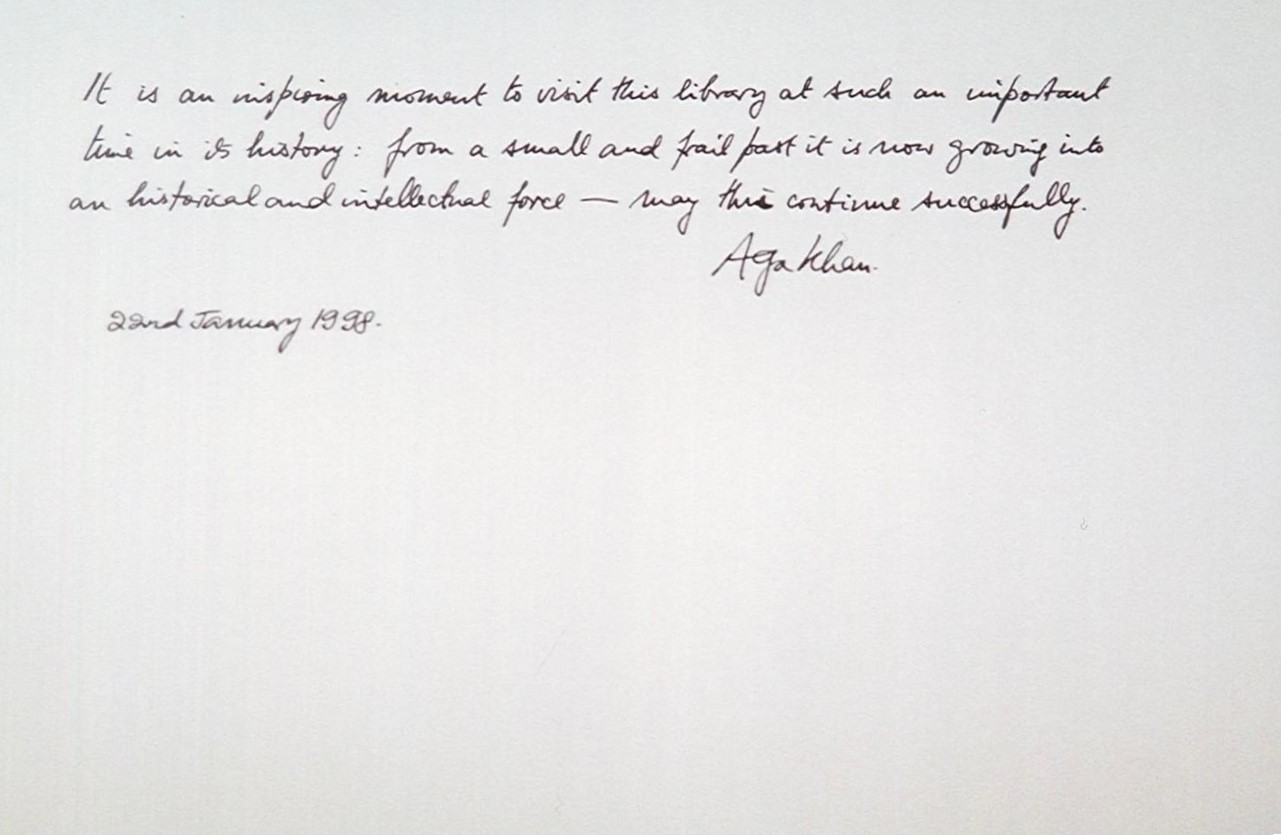 It is an inspiring moment to visit this library at such an important
time in its history: from a small and frail past it is now growing into
an historical and intellectual force — may this continue successfully.
Aga Khan.
22nd January 1998.